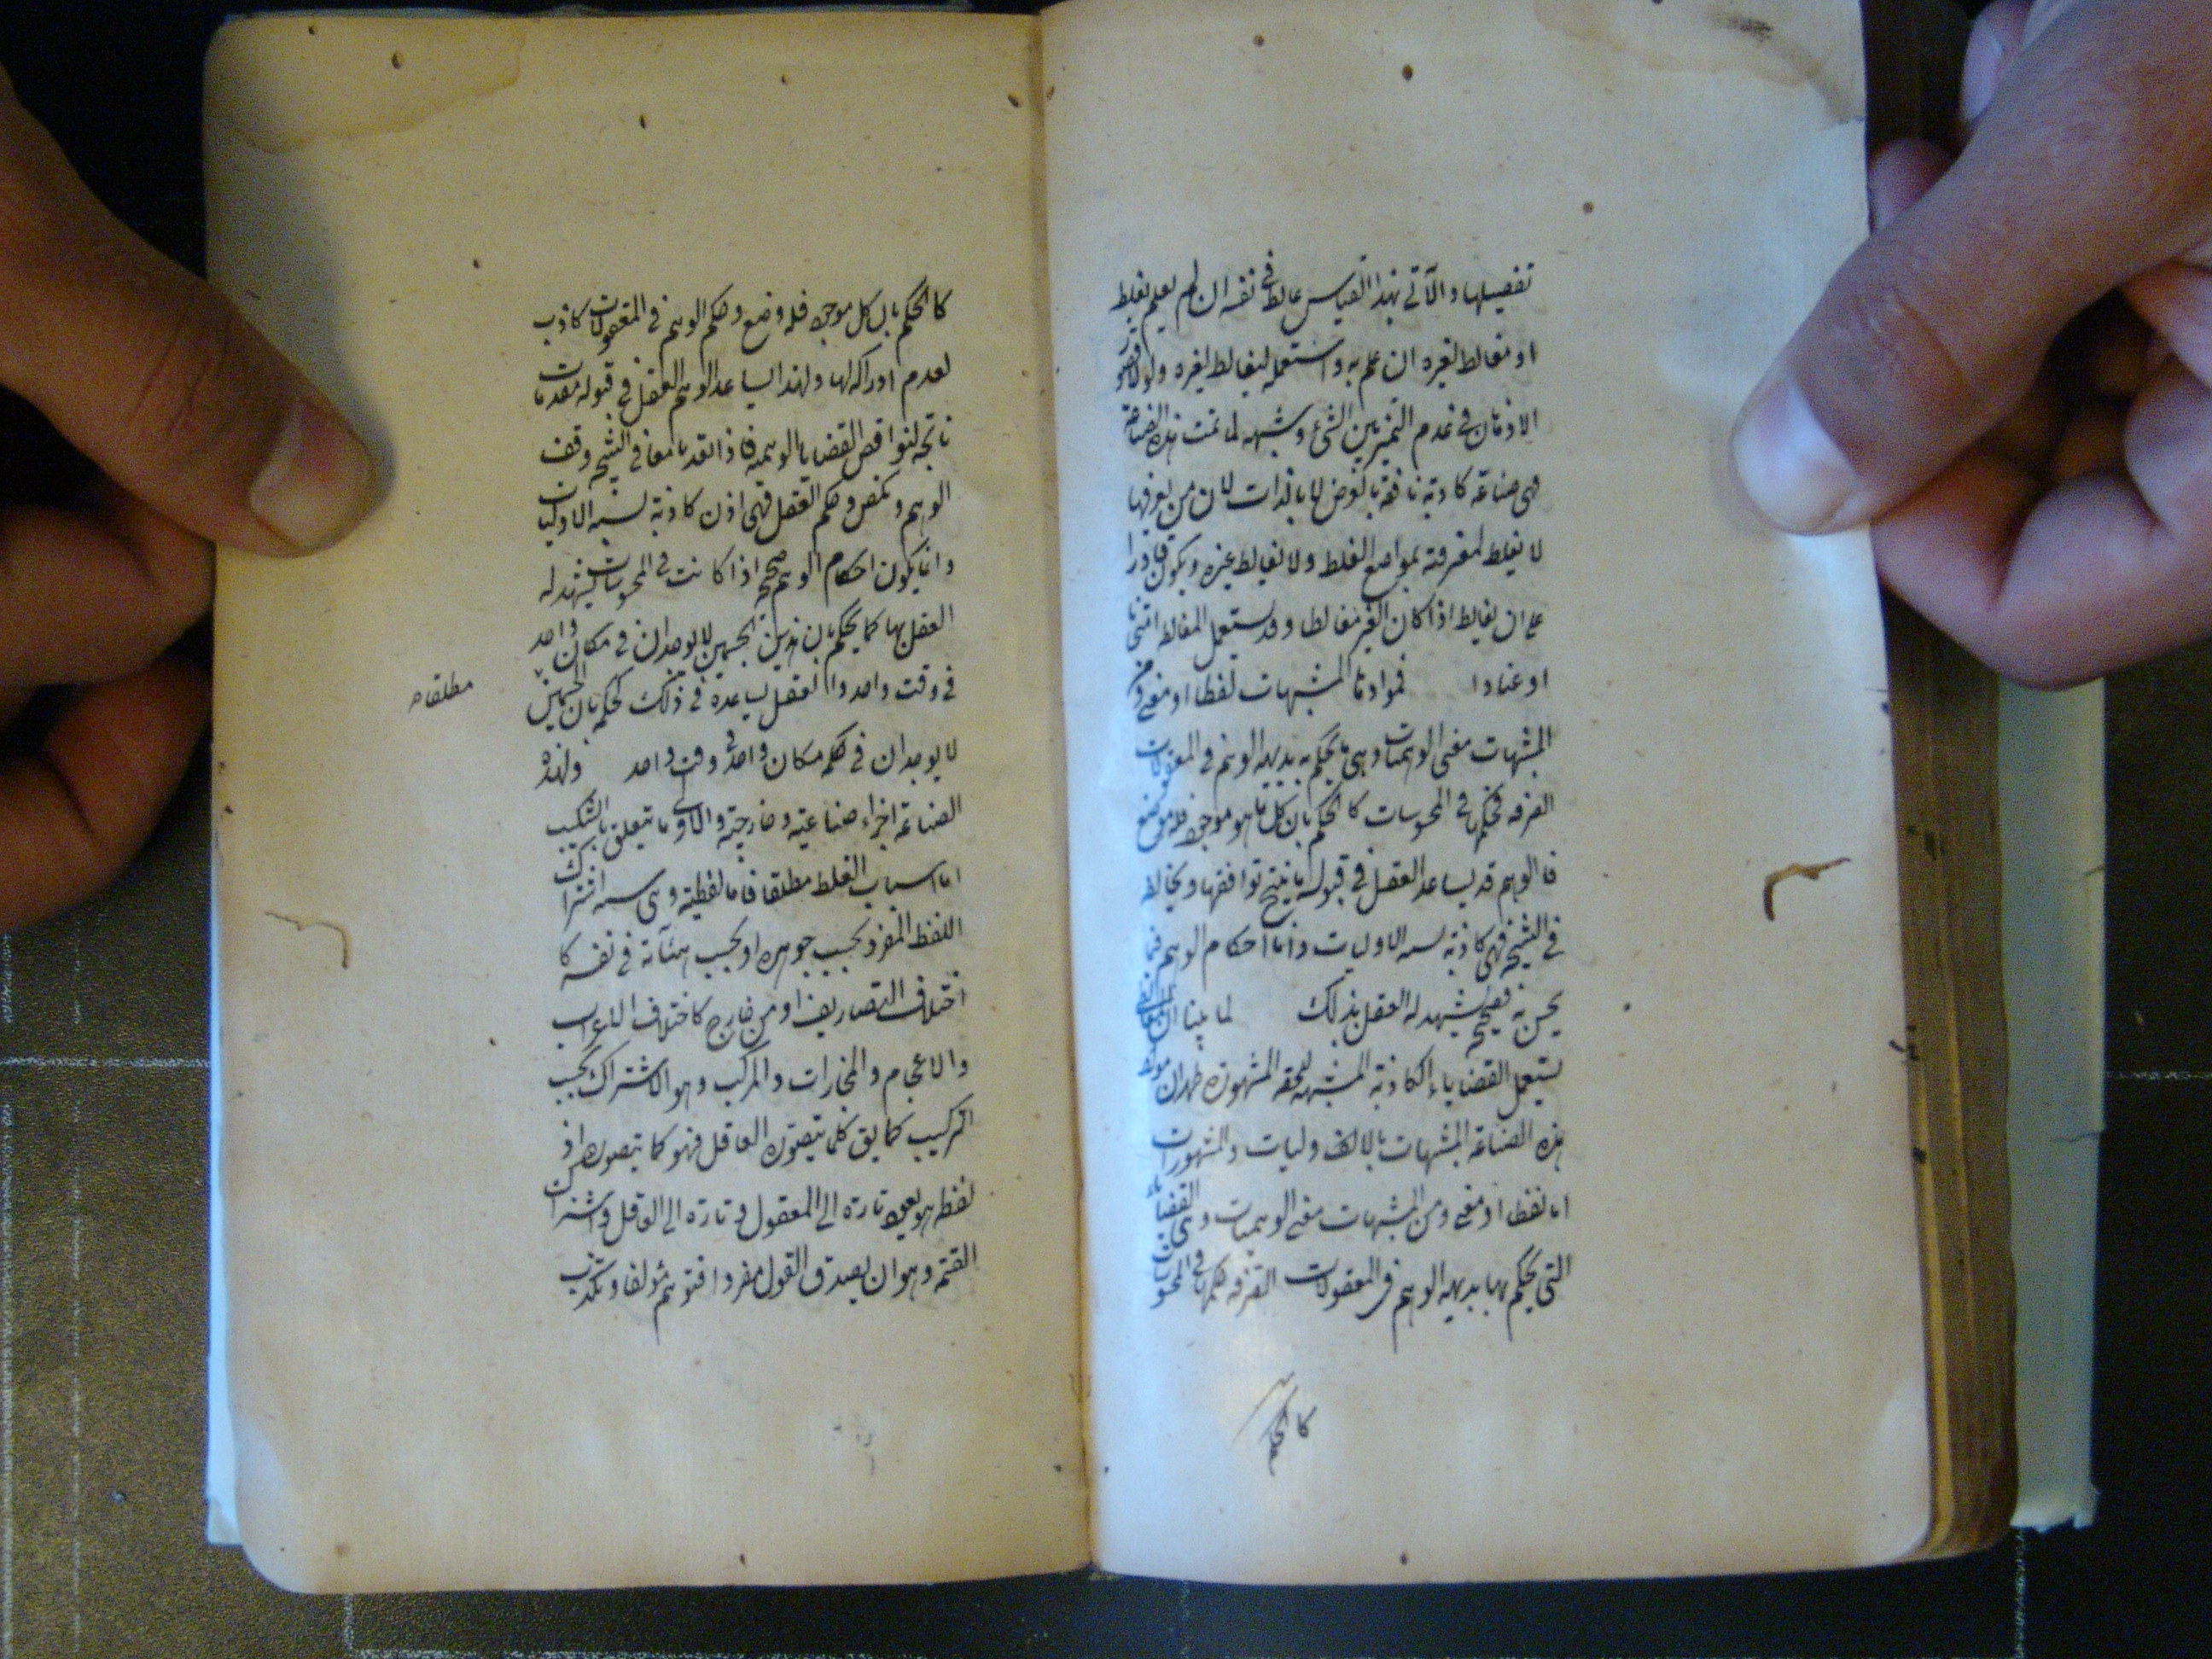 تفصيلها والآتى بهذا القياس غالط فى نفسه ان لم يعلم بغلط
او مغالط لغيره ان علم به واستعمله ليغالط لغيره ولولا قصور
الاذهان فى عدم التميز بين الشئ وشبهه لما تمت هذه الصناعة
فهى صناعة كاذبة نافعة بالعرض لا بالذات لان من يعرفها
لا يغلط لمعرفته بمواضع الغلط ولا يغالط غيره ويكون قادرا
على ان يغالط اذا كان الغير مغالطا وقد يستعمل المغالط امتحانا
او عنادا فموادها المشبهات لفظا او معنى ومن
المشبهات معنى الوهميات وهى ما يحكم به بديهه الوهم فى المعقولات
الصرفه حكمها فى المحسوسات كالحكم بان كل ما هو موجود فله وضع
فالوهم قد يساعد العقل فى قبول ما ينتج نواقضها ويخالط
فى النتيجه فهى كاذبة الاوليات واما احكام الوهم فيما
يحس به فصحيحه يشهد له العقل بذلك لما بينا ان
يستعمل القضاياء الكاذبة المشبهه المشهورة ظهر ان مواد
هذه الصناعة المشبهات والمشهورات
اما لفظا او معنى ومن المشبهات معنى الوهميات وهى القضايا
التى يحكم بها بديهه الوهم فى المعقولات الصرفه حكمها فى المحسوسات
كالحكم
كالحكم بان كل موجود فله وضع وحكم الوهم فى المعقولات كاذب
لعدم ادراكه لها ولهذا يساعد الوهم العقل فى قبوله مقدمات
ناتجه لنواقض القضايا الوهميه فاذا تعديا معا فى النتيجه وقف
الوهم ونكص وحكم العقل فهى اذن كاذبة شبيه الاوليات
وانما يكون احكام الوهم صحيحه اذا كانت فى المحسوسات يشهد له
العقل بها كما يحكم بان هذين الجسمين لا يوجدان فى مكان واحد
فى وقت واحد والعقل يساعده فى ذلك كحكمه بان الجسمين
مطلقا
لا يوجدان فى مكان واحد فى وقت واحد ولهذه
الصناعة اجزاء صناعيه وخارجيه والاولى ما يتعلق بالتبكيت
اما اسباب الغلط مطلقا فاما لفظيه وهى سته اشتراك
اللفظ المفرد بحسب جوهره او بحسب هيئاته فى نفسه كا
ختلاف التصاريف او من خارج كاختلاف الاعراب
والاعجام والمركب وهو الاشتراك بحسب
التركيب كما يق كلما يتصوره العاقل فهو كما يتصوره اذ
لفظه هو يعود تارة الى المعقول وتارة الى العاقل واشتراك
القسمه وهو ان يصدق القول مفردا فتوهم مؤلفا ويكذب